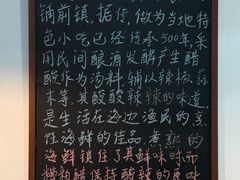 铺前镇，据传，做为当地特
色小吃已经传承500年，采
用民间酿酒发酵产生醋
酸作为汤料，辅以辣椒蒜
末等，其酸酸辣辣的味道，
是生活在海边渔民的烹
海鲜的佳品，煮熟的
海鲜锁住了其鲜味时而
糟粕醋保持酸辣的原味